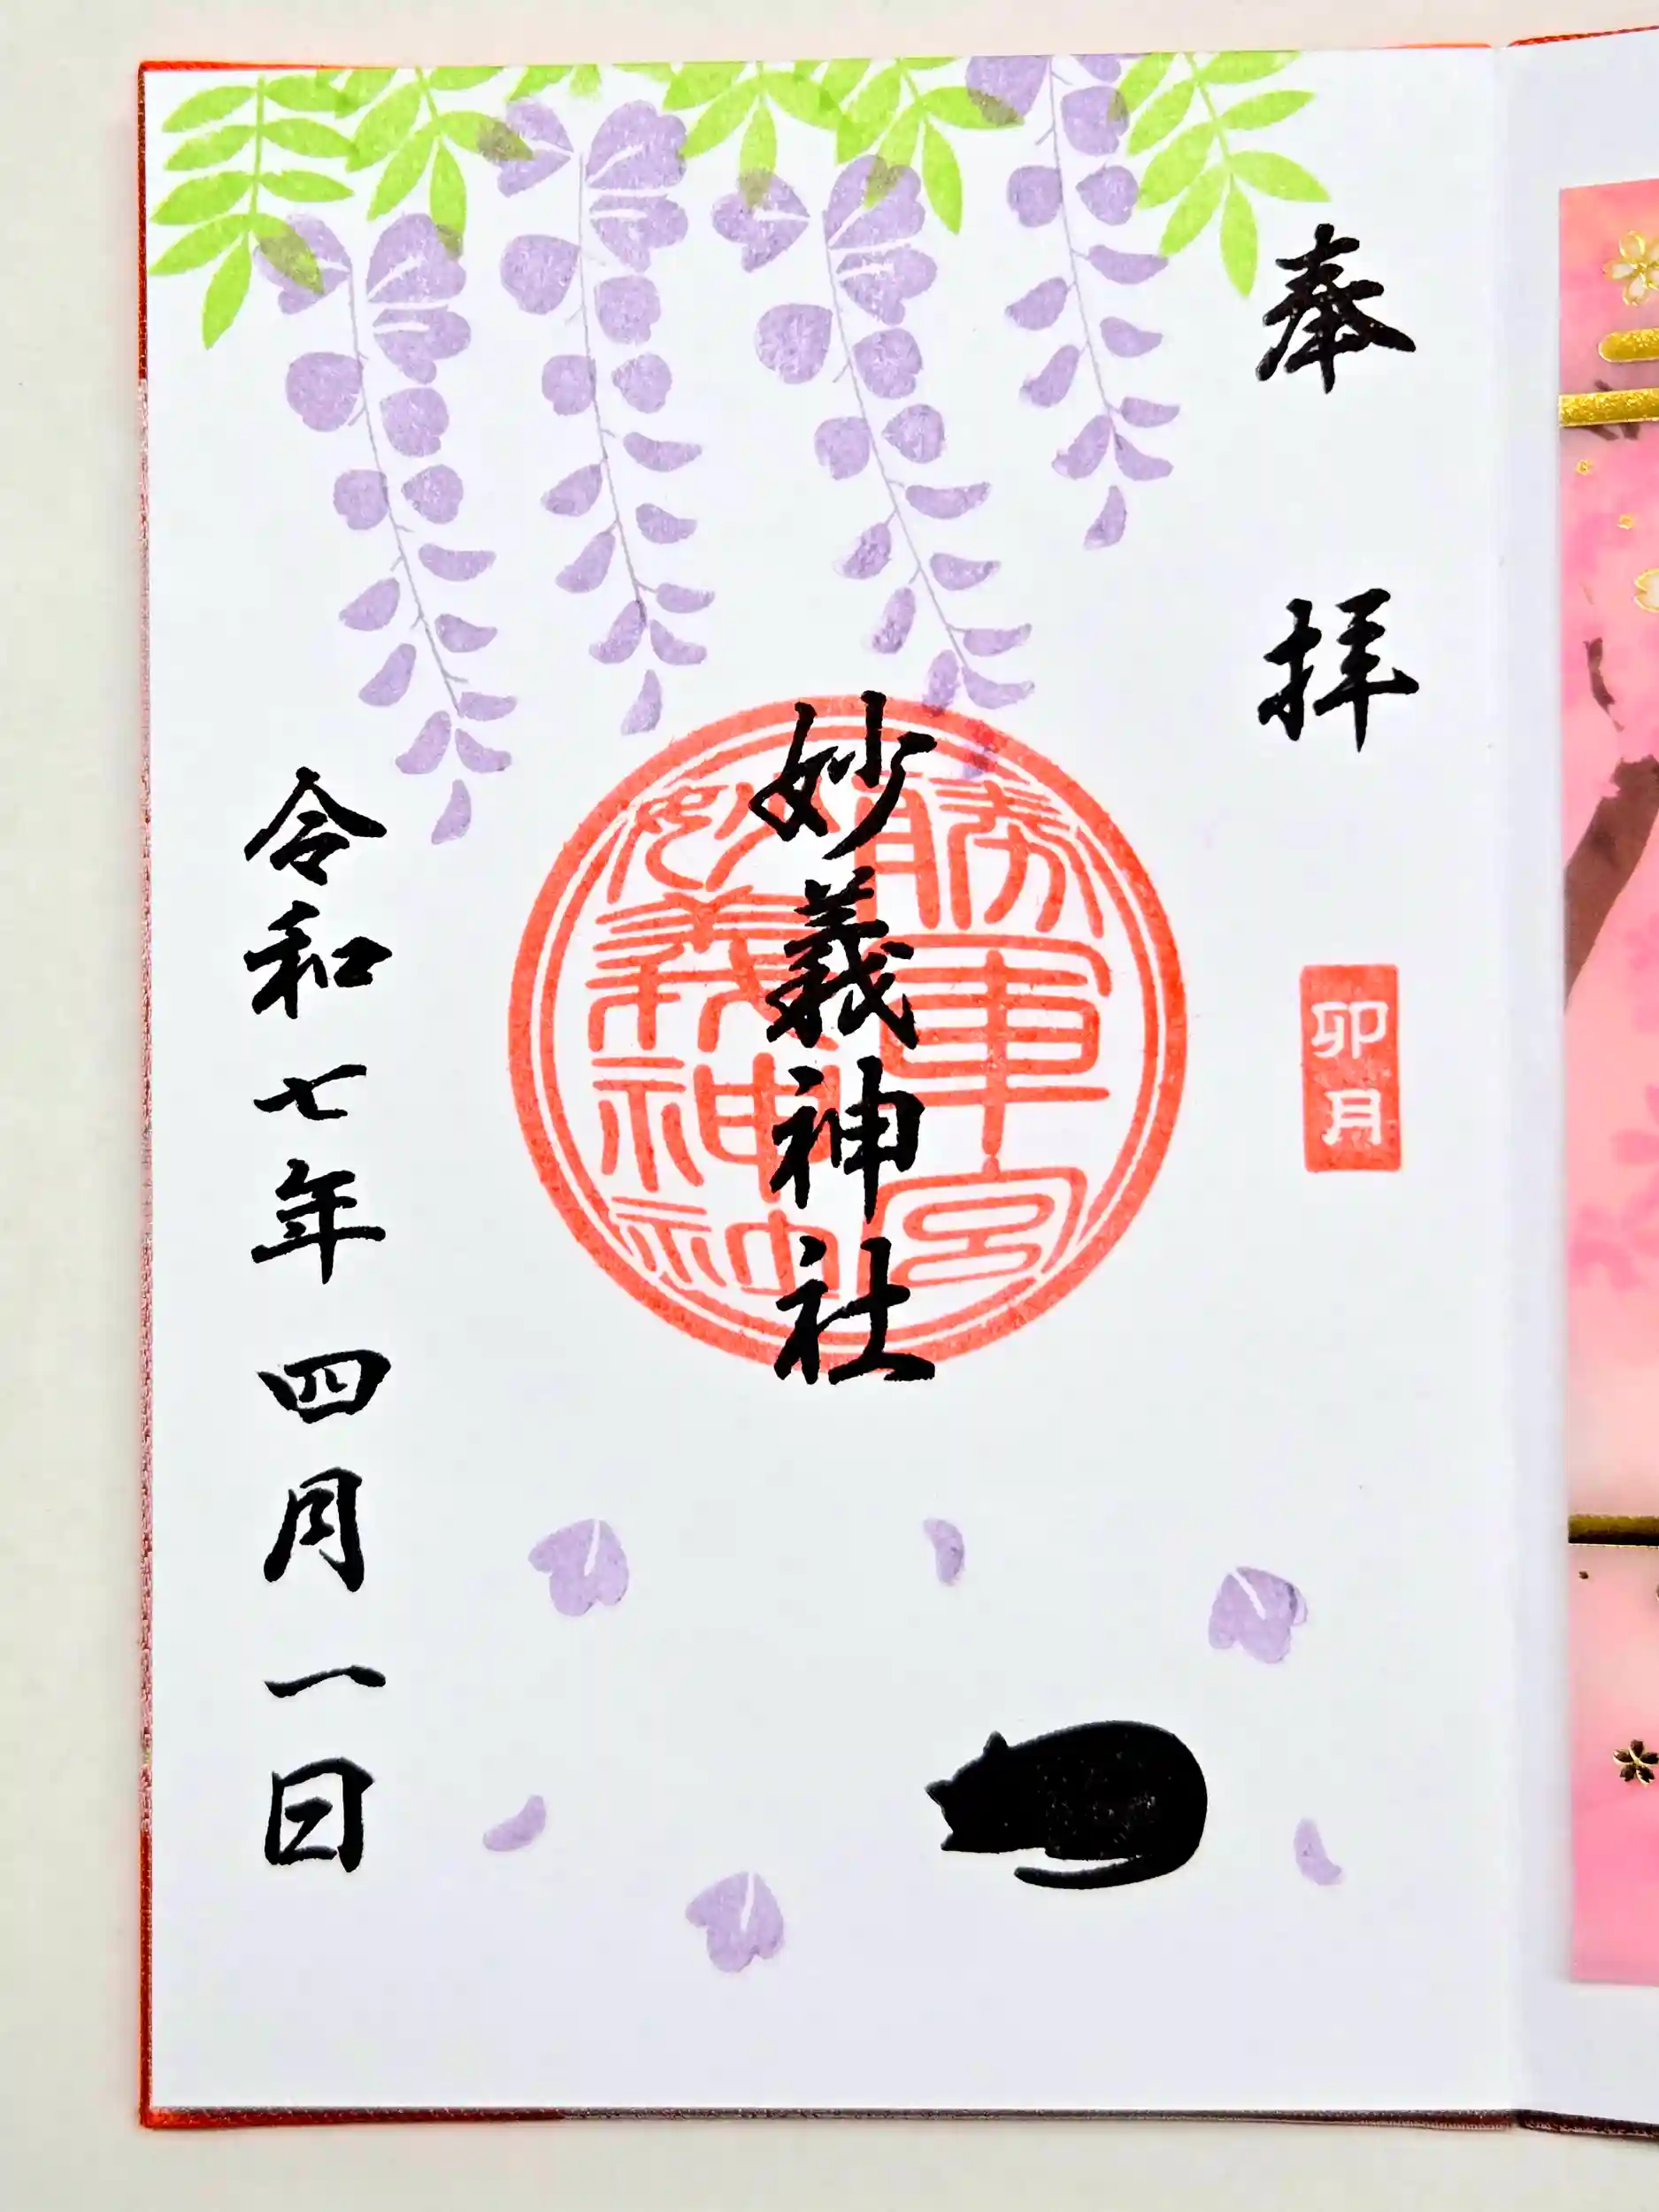 奉拝
卯月
勝軍宮
妙義神社
妙義神社
令和七年四月一日